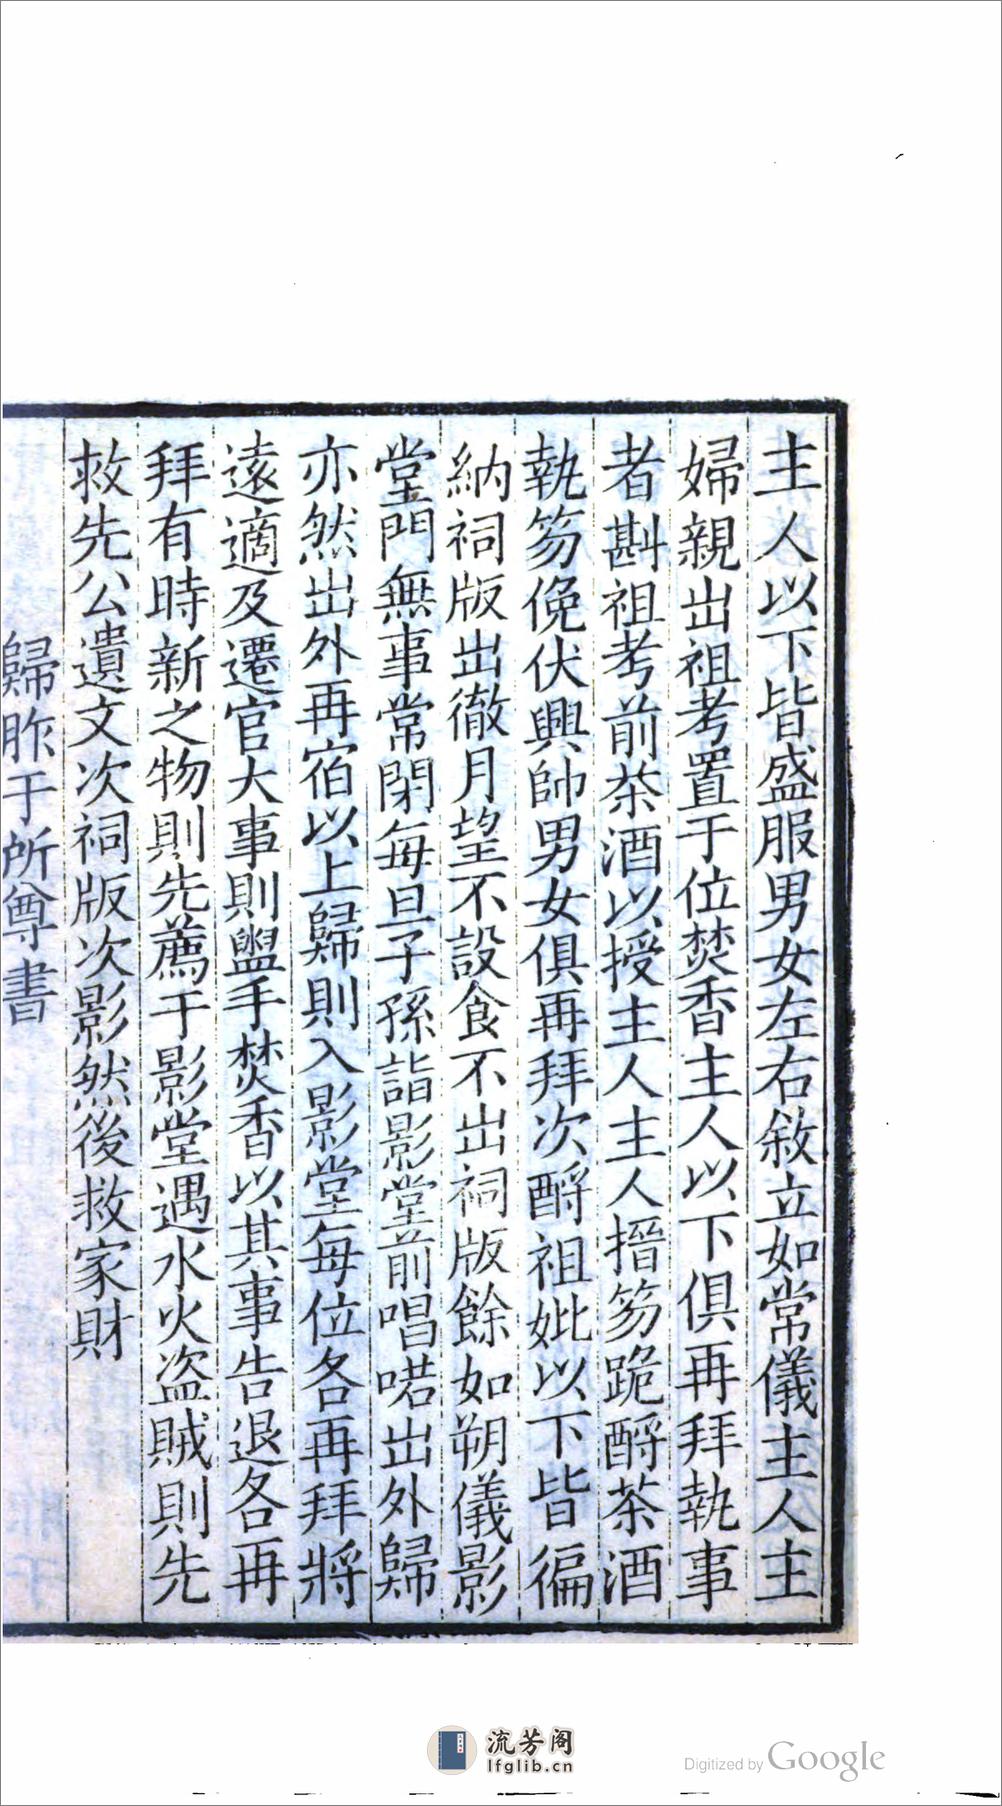 主人以下皆盛服男女左右敘立如常儀主人主
婦親出祖考置于位焚香主人以下俱再拜執事
者斟祖考前茶酒以授主人主人搢笏跪酹茶酒
執笏俛伏興帥男女俱再拜次酹祖妣以下皆徧
納祠版出徹月望不設食不出祠版餘如朔儀影
堂門無事常閉每旦子孫詣影堂前唱喏出外歸
亦然出外再宿以上歸則入影堂每位各再拜將
遠適及遷官大事則盥手焚香以其事告退各再
拜有時新之物則先薦于影堂遇水火盜賊則先
救先公遺文次祠版次影然後救家財
歸胙于所尊書
流芳阁
lfglib.cn
Digitized by Google